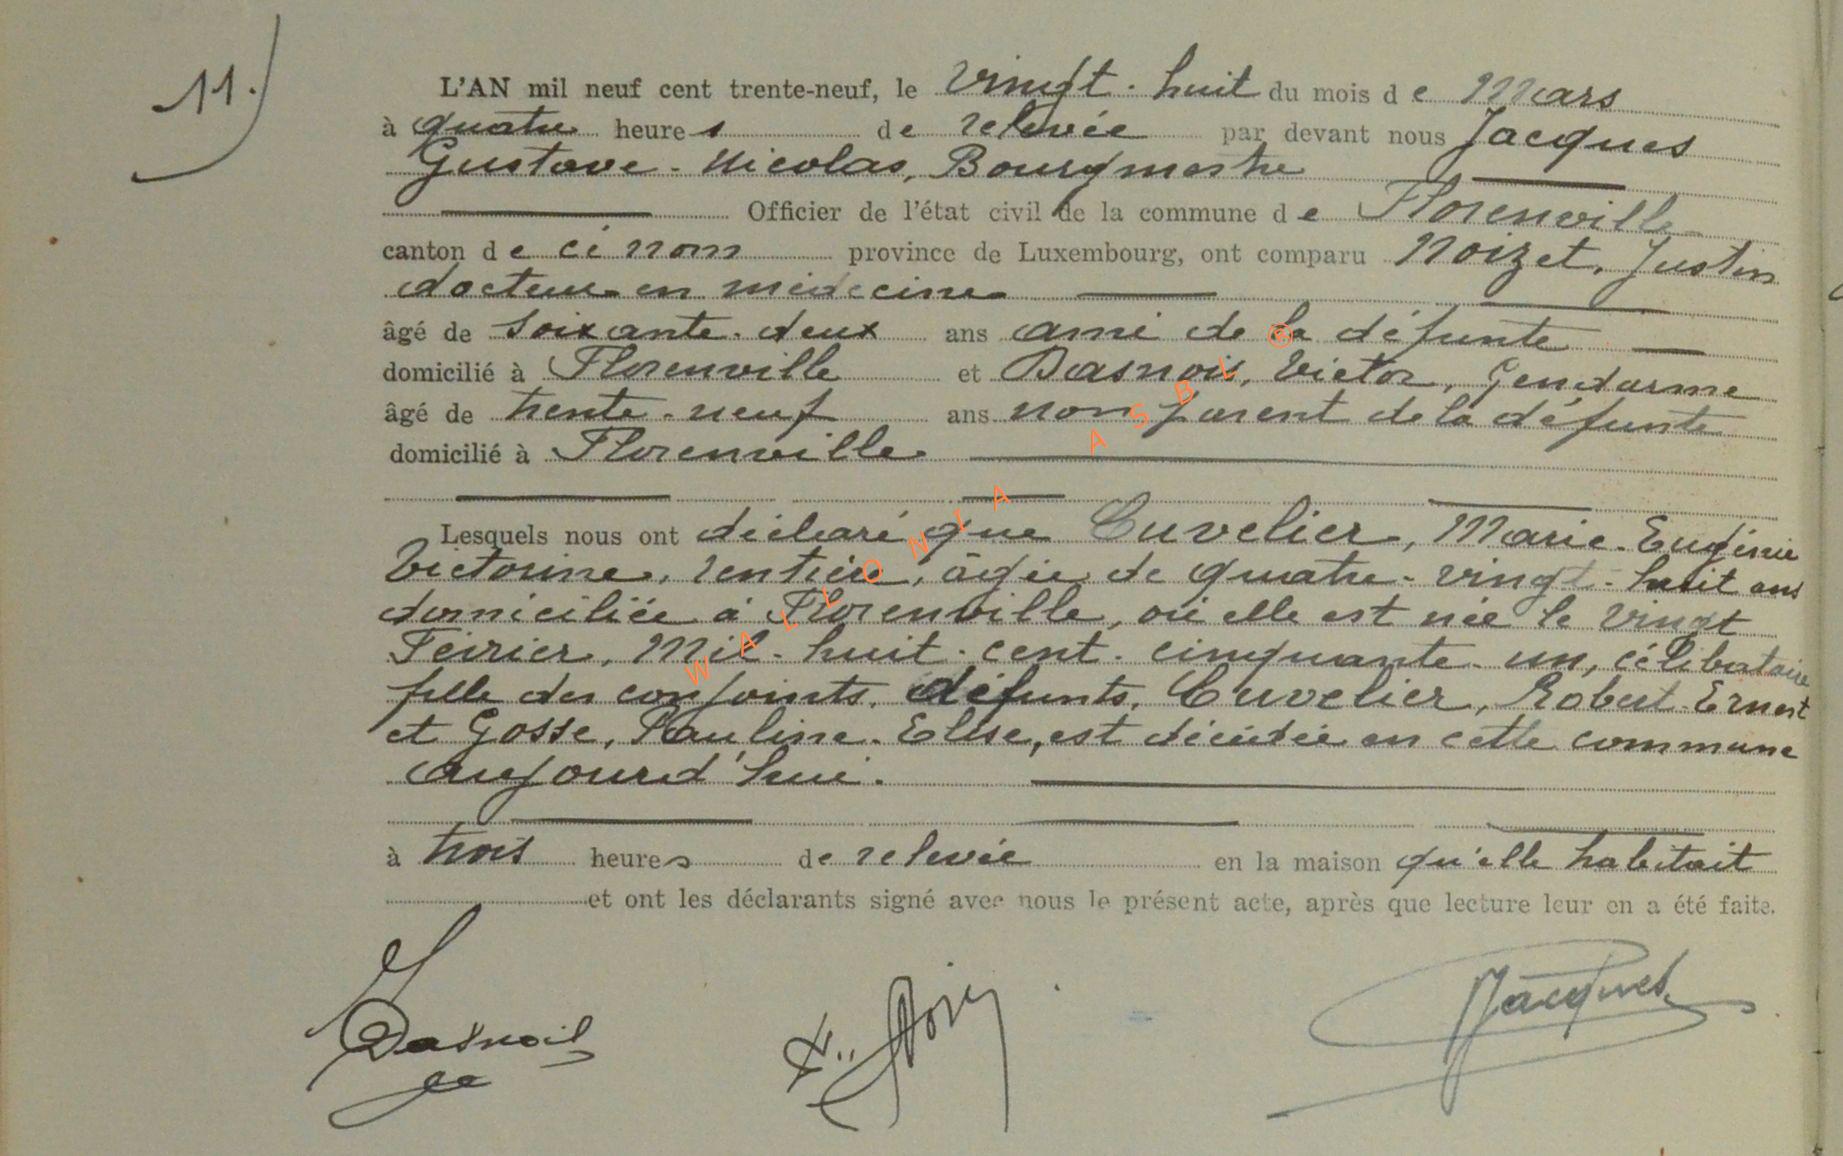 11.
L'AN mil neuf cent trente-neuf, le vingt-huit du mois de Mars
à quatre heures de relevée par devant nous Jacques
Gustave-Nicolas, Bourgmestre
Officier de l'état civil de la commune de Florenville
canton de ci nom province de Luxembourg, ont comparu Noizet, Justin
docteur en médecine
âgé de soixante-deux ans ami de la défunte
domicilié à Florenville et Dasnois, Victor, Gendarme
âgé de trente-neuf ans non parent de la défunte
domicilié à Florenville
Lesquels nous ont déclaré que Cuvelier, Marie-Eugénie
Victorine, rentière, âgée de quatre-vingt-huit ans
domiciliée à Florenville, où elle est née le vingt
Février, Mil-huit-cent-cinquante-un, célibataire
fille des conjoints, défunts, Cuvelier, Robert-Ernest
et Gosse, Pauline-Elise, est décédée en cette commune
aujourd'hui.
à trois heures de relevée en la maison qu'elle habitait
et ont les déclarants signé avec nous le présent acte, après que lecture leur en a été faite.
Dasnois
Jacques
WALLONIA ASBL ®